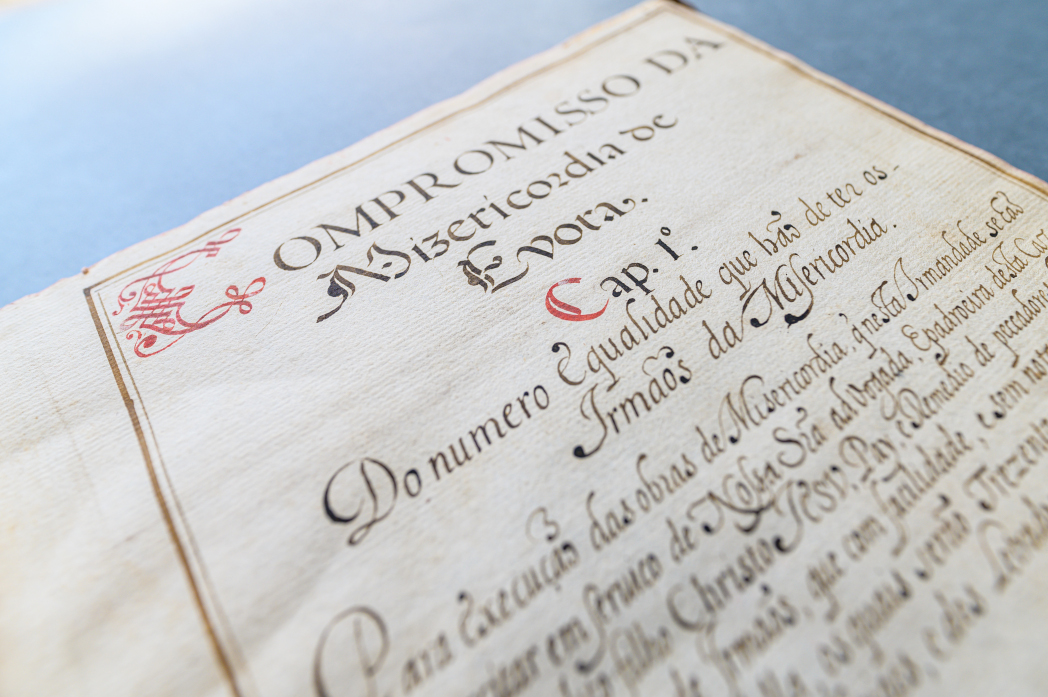 COMPROMISSO DA
Mizericordia de
Evora.
Cap. 1º.
Do numero E qualidade que hão de ter os-
Irmãos da Misericordia.
Para Execução das obras de Misericordia, q nesta Irmandade se
em seruiço de Nossa Srã advogada, E padroeira desta
filho Christo Iesv, Pay, e Remedio de peccadores
de Irmãos, que com facilidade, e sem
os quaes serão Trezentos
e dės